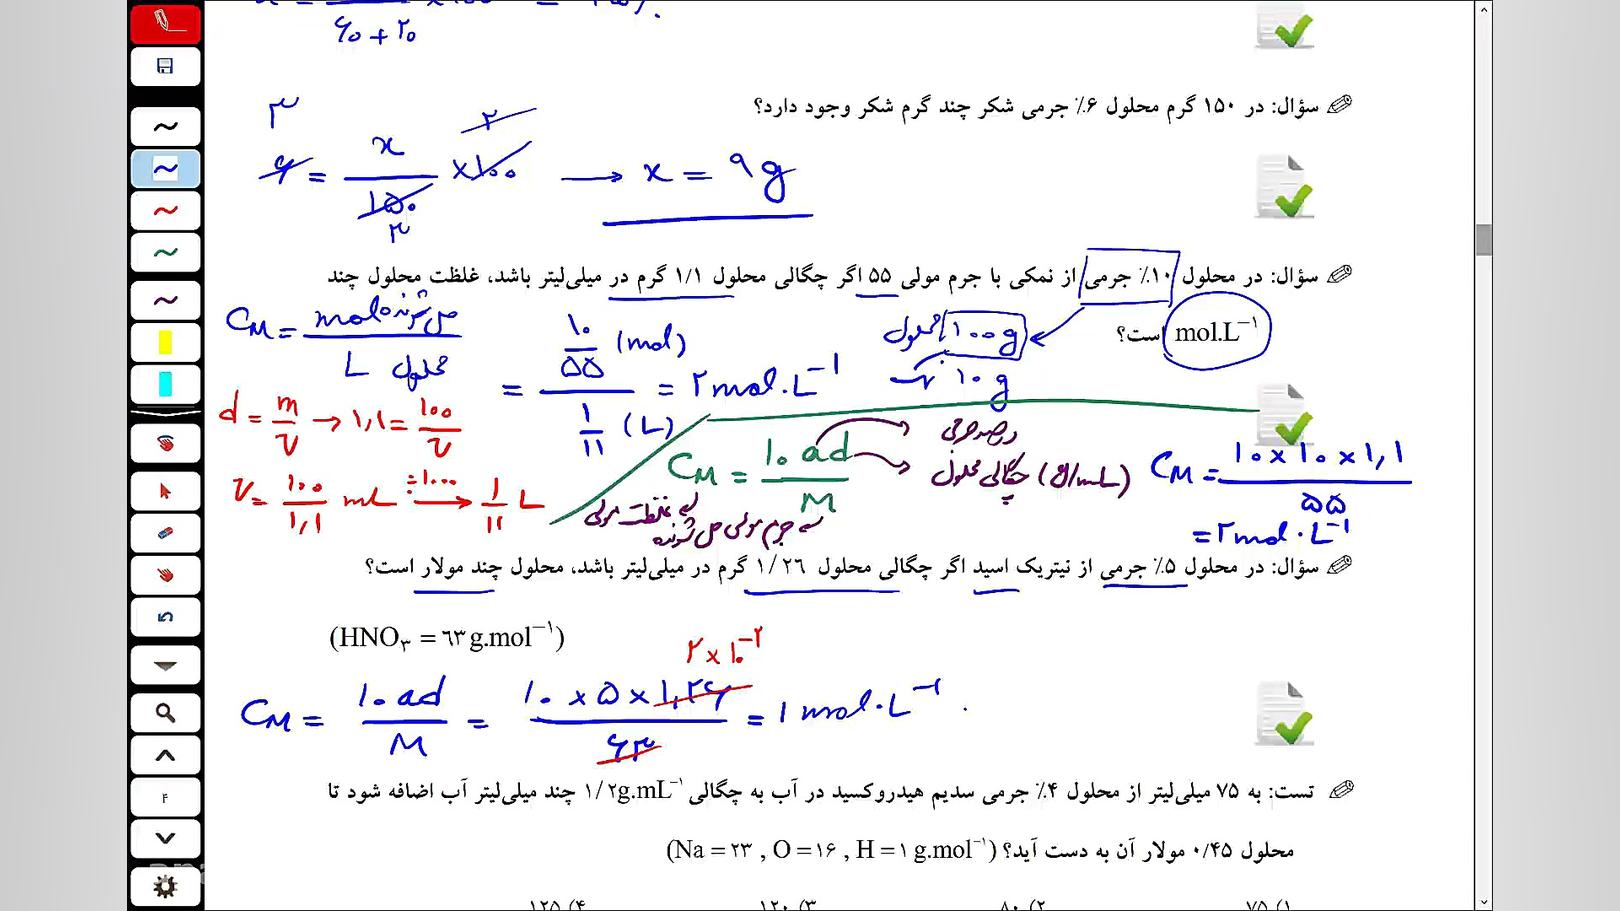 ۶۰ + ۲۰
سؤال: در ۱۵۰ گرم محلول ۶٪ جرمی شکر چند گرم شکر وجود دارد؟
۳
۶ = x / ۱۵۰ × ۱۰۰ → x = ۹g
۲
۳
سؤال: در محلول ۱۰٪ جرمی از نمکی با جرم مولی ۵۵ اگر چگالی محلول ۱/۱ گرم در میلی‌لیتر باشد، غلظت محلول چند
mol.L⁻¹ است؟
CM = mol حل شونده / L محلول
= ۱۰/۵۵ (mol) / ۱/۱۱ (L) = ۲ mol.L⁻¹
۱۰۰g محلول
۱۰g نمک
d = m/V → ۱,۱ = ۱۰۰/V
V = ۱۰۰/۱,۱ mL ÷۱۰۰۰ → ۱/۱۱ L
CM = ۱۰ad / M
درصد جرمی
چگالی محلول (g/mL)
غلظت مولی
جرم مولی حل شونده
CM = ۱۰×۱۰×۱,۱ / ۵۵
= ۲ mol.L⁻¹
سؤال: در محلول ۵٪ جرمی از نیتریک اسید اگر چگالی محلول ۱/۲۶ گرم در میلی‌لیتر باشد، محلول چند مولار است؟
(HNO₃ = ۶۳ g.mol⁻¹)
۲×۱۰⁻²
CM = ۱۰ad / M = ۱۰ × ۵ × ۱,۲۶ / ۶۳ = ۱ mol.L⁻¹
تست: به ۷۵ میلی‌لیتر از محلول ۴٪ جرمی سدیم هیدروکسید در آب به چگالی ۱/۲g.mL⁻¹ چند میلی‌لیتر آب اضافه شود تا
محلول ۰/۴۵ مولار آن به دست آید؟ (Na = ۲۳ , O = ۱۶ , H = ۱ g.mol⁻¹)
۱) ۷۵ ۲) ۸۰ ۳) ۱۲۰ ۴) ۱۲۵
۴